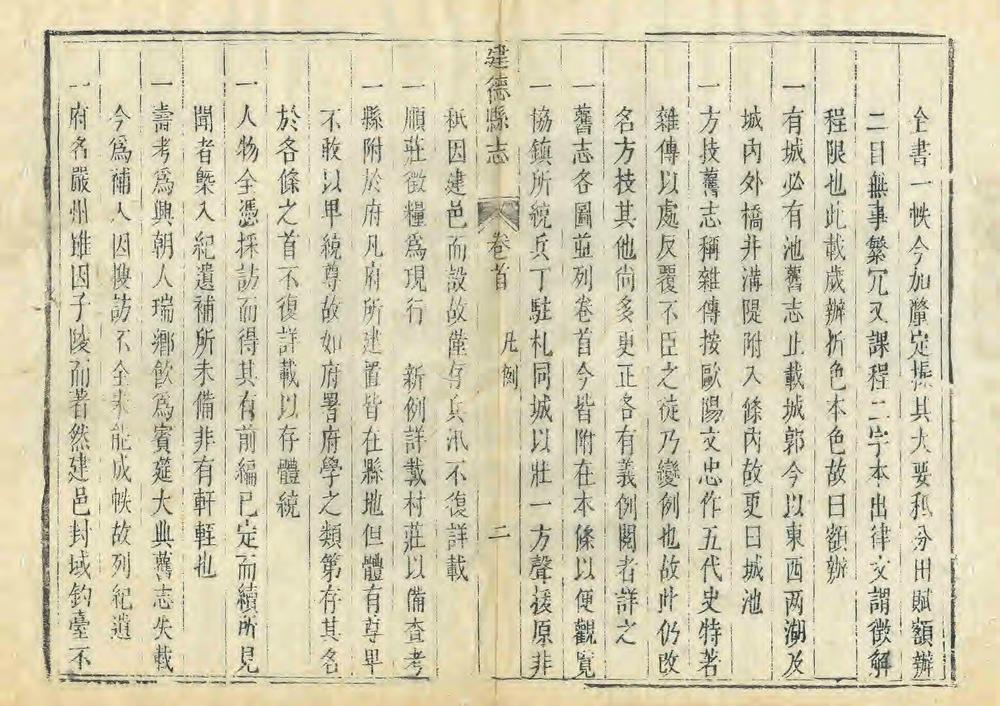 全書一帙今加釐定振其大要利分田賦額辦
二目無事繁冗又課程二字本出律文謂徵解
程限也此載歲辦折色本色故曰額辦
一有城必有池舊志止載城郭今以東西两湖及
城内外橋井溝隄附入條内故更曰城池
一方技舊志稱雜傳按歐陽文忠作五代史特著
雜傳以處反覆不臣之徒乃變例也故此仍改
名方技其他尚多更正各有義例閱者詳之
一舊志各圖並列卷首今皆附在本條以便觀覽
一協鎮所統兵丁駐札同城以壯一方聲援原非
建德縣志 卷首 凡例 二
秪因建邑而設故僅存兵汛不復詳載
一順莊徵糧為現行 新例詳載村莊以備查考
一縣附於府凡府所建置皆在縣地但體有尊卑
不敢以卑統尊故如府署府學之類第存其名
於各條之首不復詳載以存體統
一人物全憑採訪而得其有前編已定而續所見
聞者槩入紀遺補所未備非有軒輊也
一壽考為興朝人瑞鄉飲為賓筵大典舊志失載
今為補入因搜訪不全未能成帙故列紀遺
一府名嚴州雖因子陵而著然建邑封域釣臺不